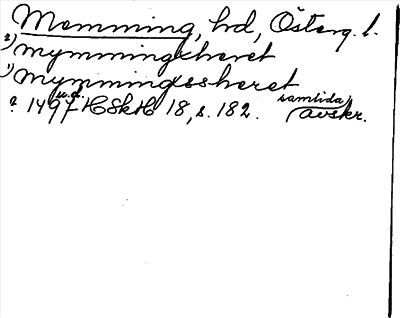 Memming, hd, Österg. l.
2) mymmingxheret
1) mymmingssheret
? 1497 u.d. HSkH 18, s. 182. samtida avskr.